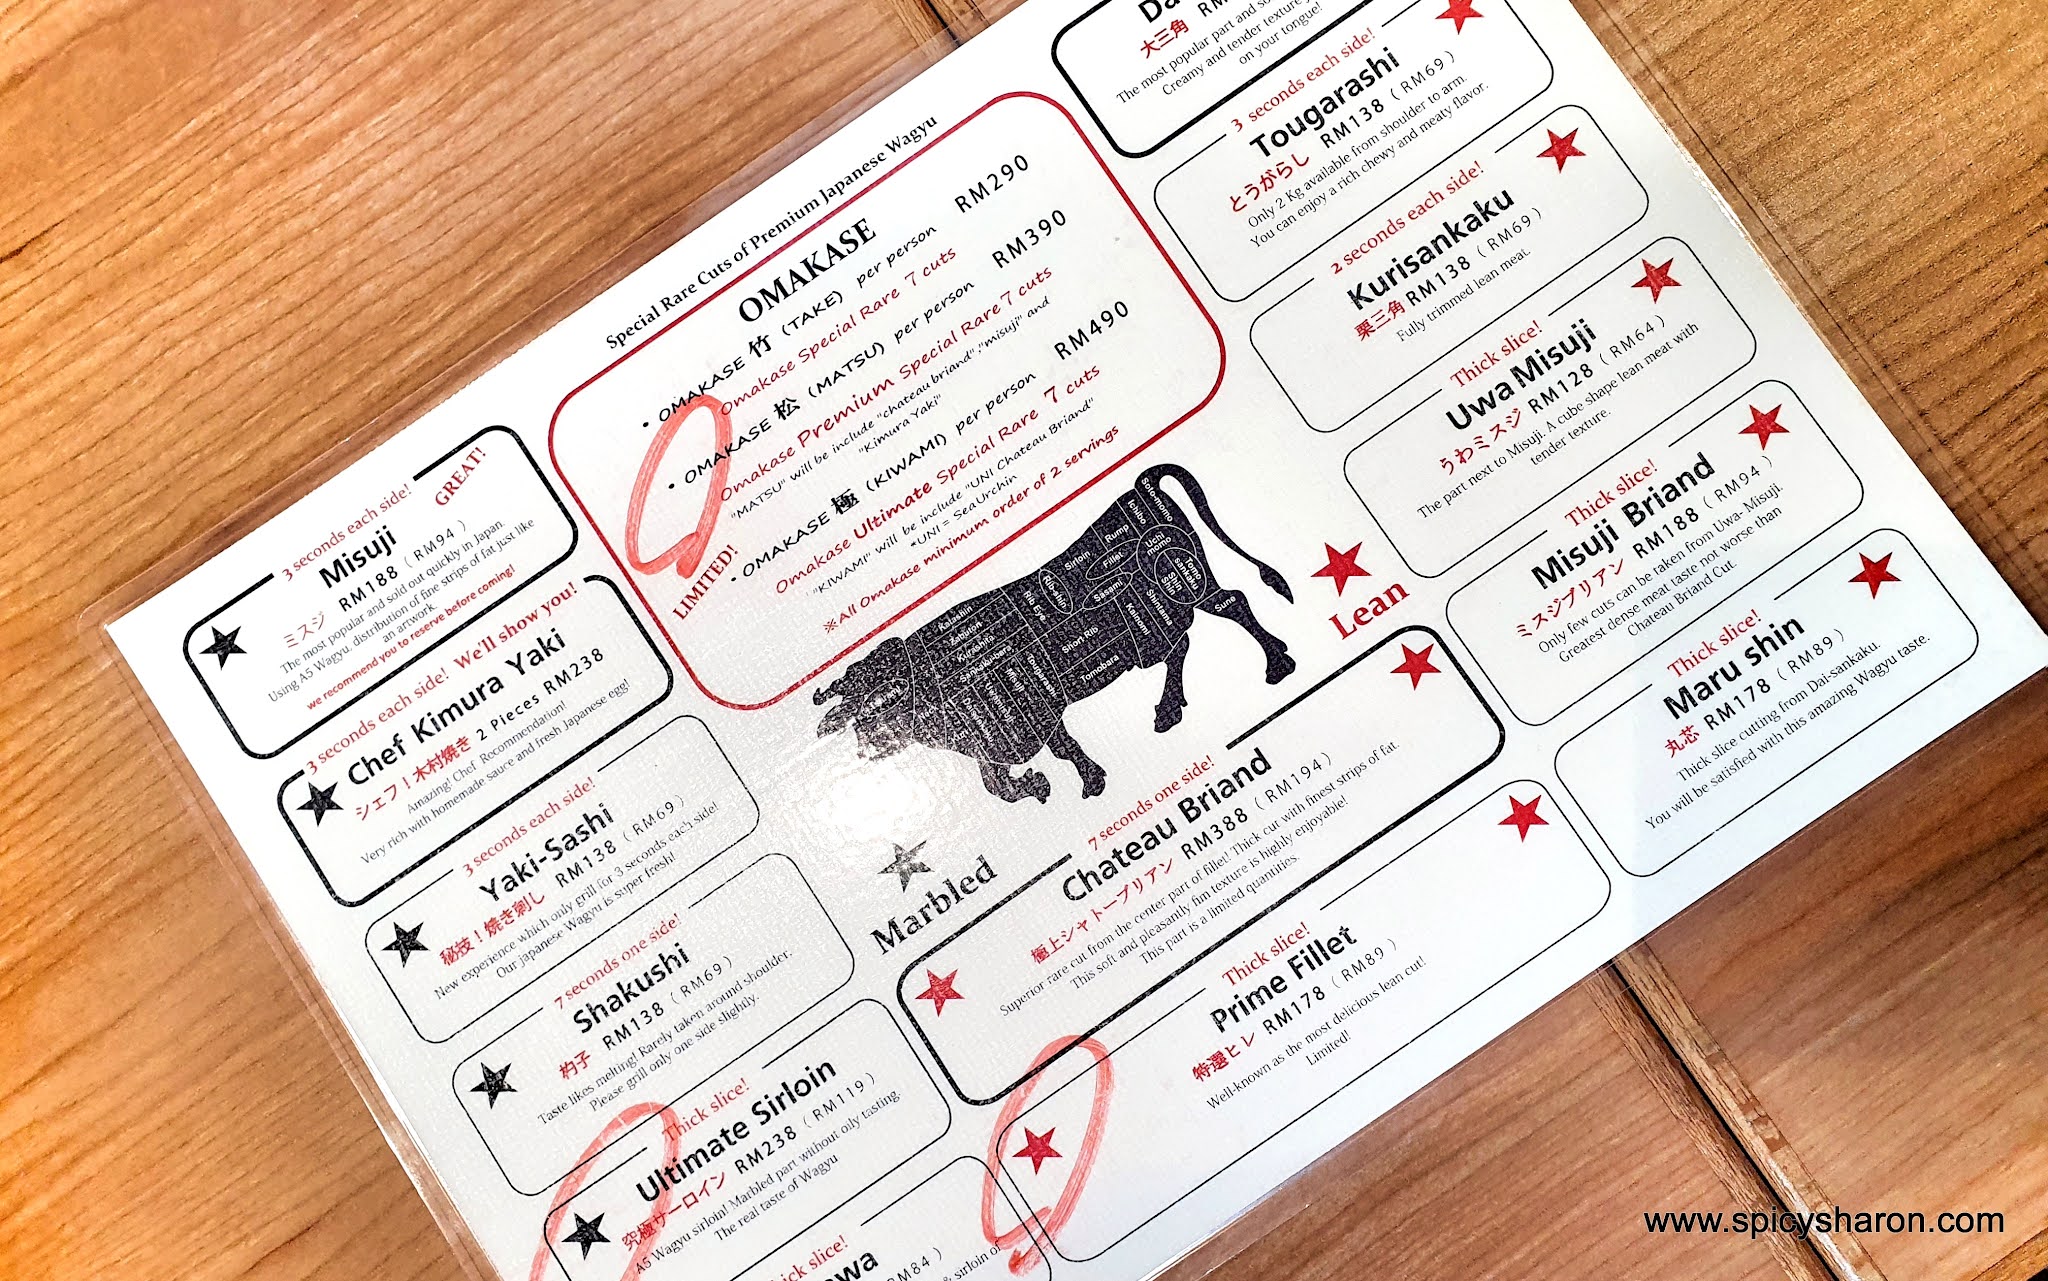 Special Rare Cuts of Premium Japanese Wagyu
OMAKASE
• OMAKASE 竹 (TAKE) per person RM290
Omakase Special Rare 7 cuts
• OMAKASE 松 (MATSU) per person RM390
Omakase Premium Special Rare 7 cuts
"MATSU" will be include "chateau briand","misuji" and
"Kimura Yaki"
• OMAKASE 極 (KIWAMI) per person RM490
Omakase Ultimate Special Rare 7 cuts
"KIWAMI" will be include "UNI Chateau Briand"
*UNI = SeaUrchin
※All Omakase minimum order of 2 servings
LIMITED!
3 seconds each side!
GREAT!
Misuji
ミスジ RM188 (RM94)
The most popular and sold out quickly in Japan.
Using A5 Wagyu, distribution of fine strips of fat just like
an artwork.
we recommend you to reserve before coming!
3 seconds each side! We'll show you!
Chef Kimura Yaki
シェフ!木村焼き 2 Pieces RM238
Amazing! Chef Recommendation!
Very rich with homemade sauce and fresh Japanese egg!
3 seconds each side!
Yaki-Sashi
秘技!焼き刺し RM138 (RM69)
New experience which only grill for 3 seconds each side!
Our japanese Wagyu is super fresh!
7 seconds one side!
Shakushi
杓子 RM138 (RM69)
Taste likes melting! Rarely taken around shoulder.
Please grill only one side slightly.
Thick slice!
Ultimate Sirloin
究極サーロイン RM238 (RM119)
A5 Wagyu sirloin! Marbled part without oily tasting.
The real taste of Wagyu
Thick slice!
RM84)
& sirloin of
Solo-momo
Ichibo
Rump
Uchi momo
Tomo sankaku
Shin Shin
Sirloin
Fillet
Sasami
Shintama
Sune
Ribshin
Rib Eye
Kainomi
Short Rib
Tomobara
Kalashin
Zabuton
Kurashita
Sankakubara
Tougarashi
Misuji
Marbled
Lean
7 seconds one side!
Chateau Briand
極上シャトーブリアン RM388 (RM194)
Superior rare cut from the center part of fillet! Thick cut with finest strips of fat.
This soft and pleasantly firm texture is highly enjoyable!
This part is a limited quantities.
Thick slice!
Prime Fillet
特選ヒレ RM178 (RM89)
Well-known as the most delicious lean cut!
Limited!
Da
大三角 RM
The most popular part and so
Creamy and tender texture
on your tongue!
3 seconds each side!
Tougarashi
とうがらし RM138 (RM69)
Only 2 Kg available from shoulder to arm.
You can enjoy a rich chewy and meaty flavor.
2 seconds each side!
Kurisankaku
栗三角 RM138 (RM69)
Fully trimmed lean meat.
Thick slice!
Uwa Misuji
うわミスジ RM128 (RM64)
The part next to Misuji. A cube shape lean meat with
tender texture.
Thick slice!
Misuji Briand
ミスジブリアン RM188 (RM94)
Only few cuts can be taken from Uwa- Misuji.
Greatest dense meat taste not worse than
Chateau Briand Cut.
Thick slice!
Maru shin
丸芯 RM178 (RM89)
Thick slice cutting from Dai-sankaku.
You will be satisfied with this amazing Wagyu taste.
www.spicysharon.com